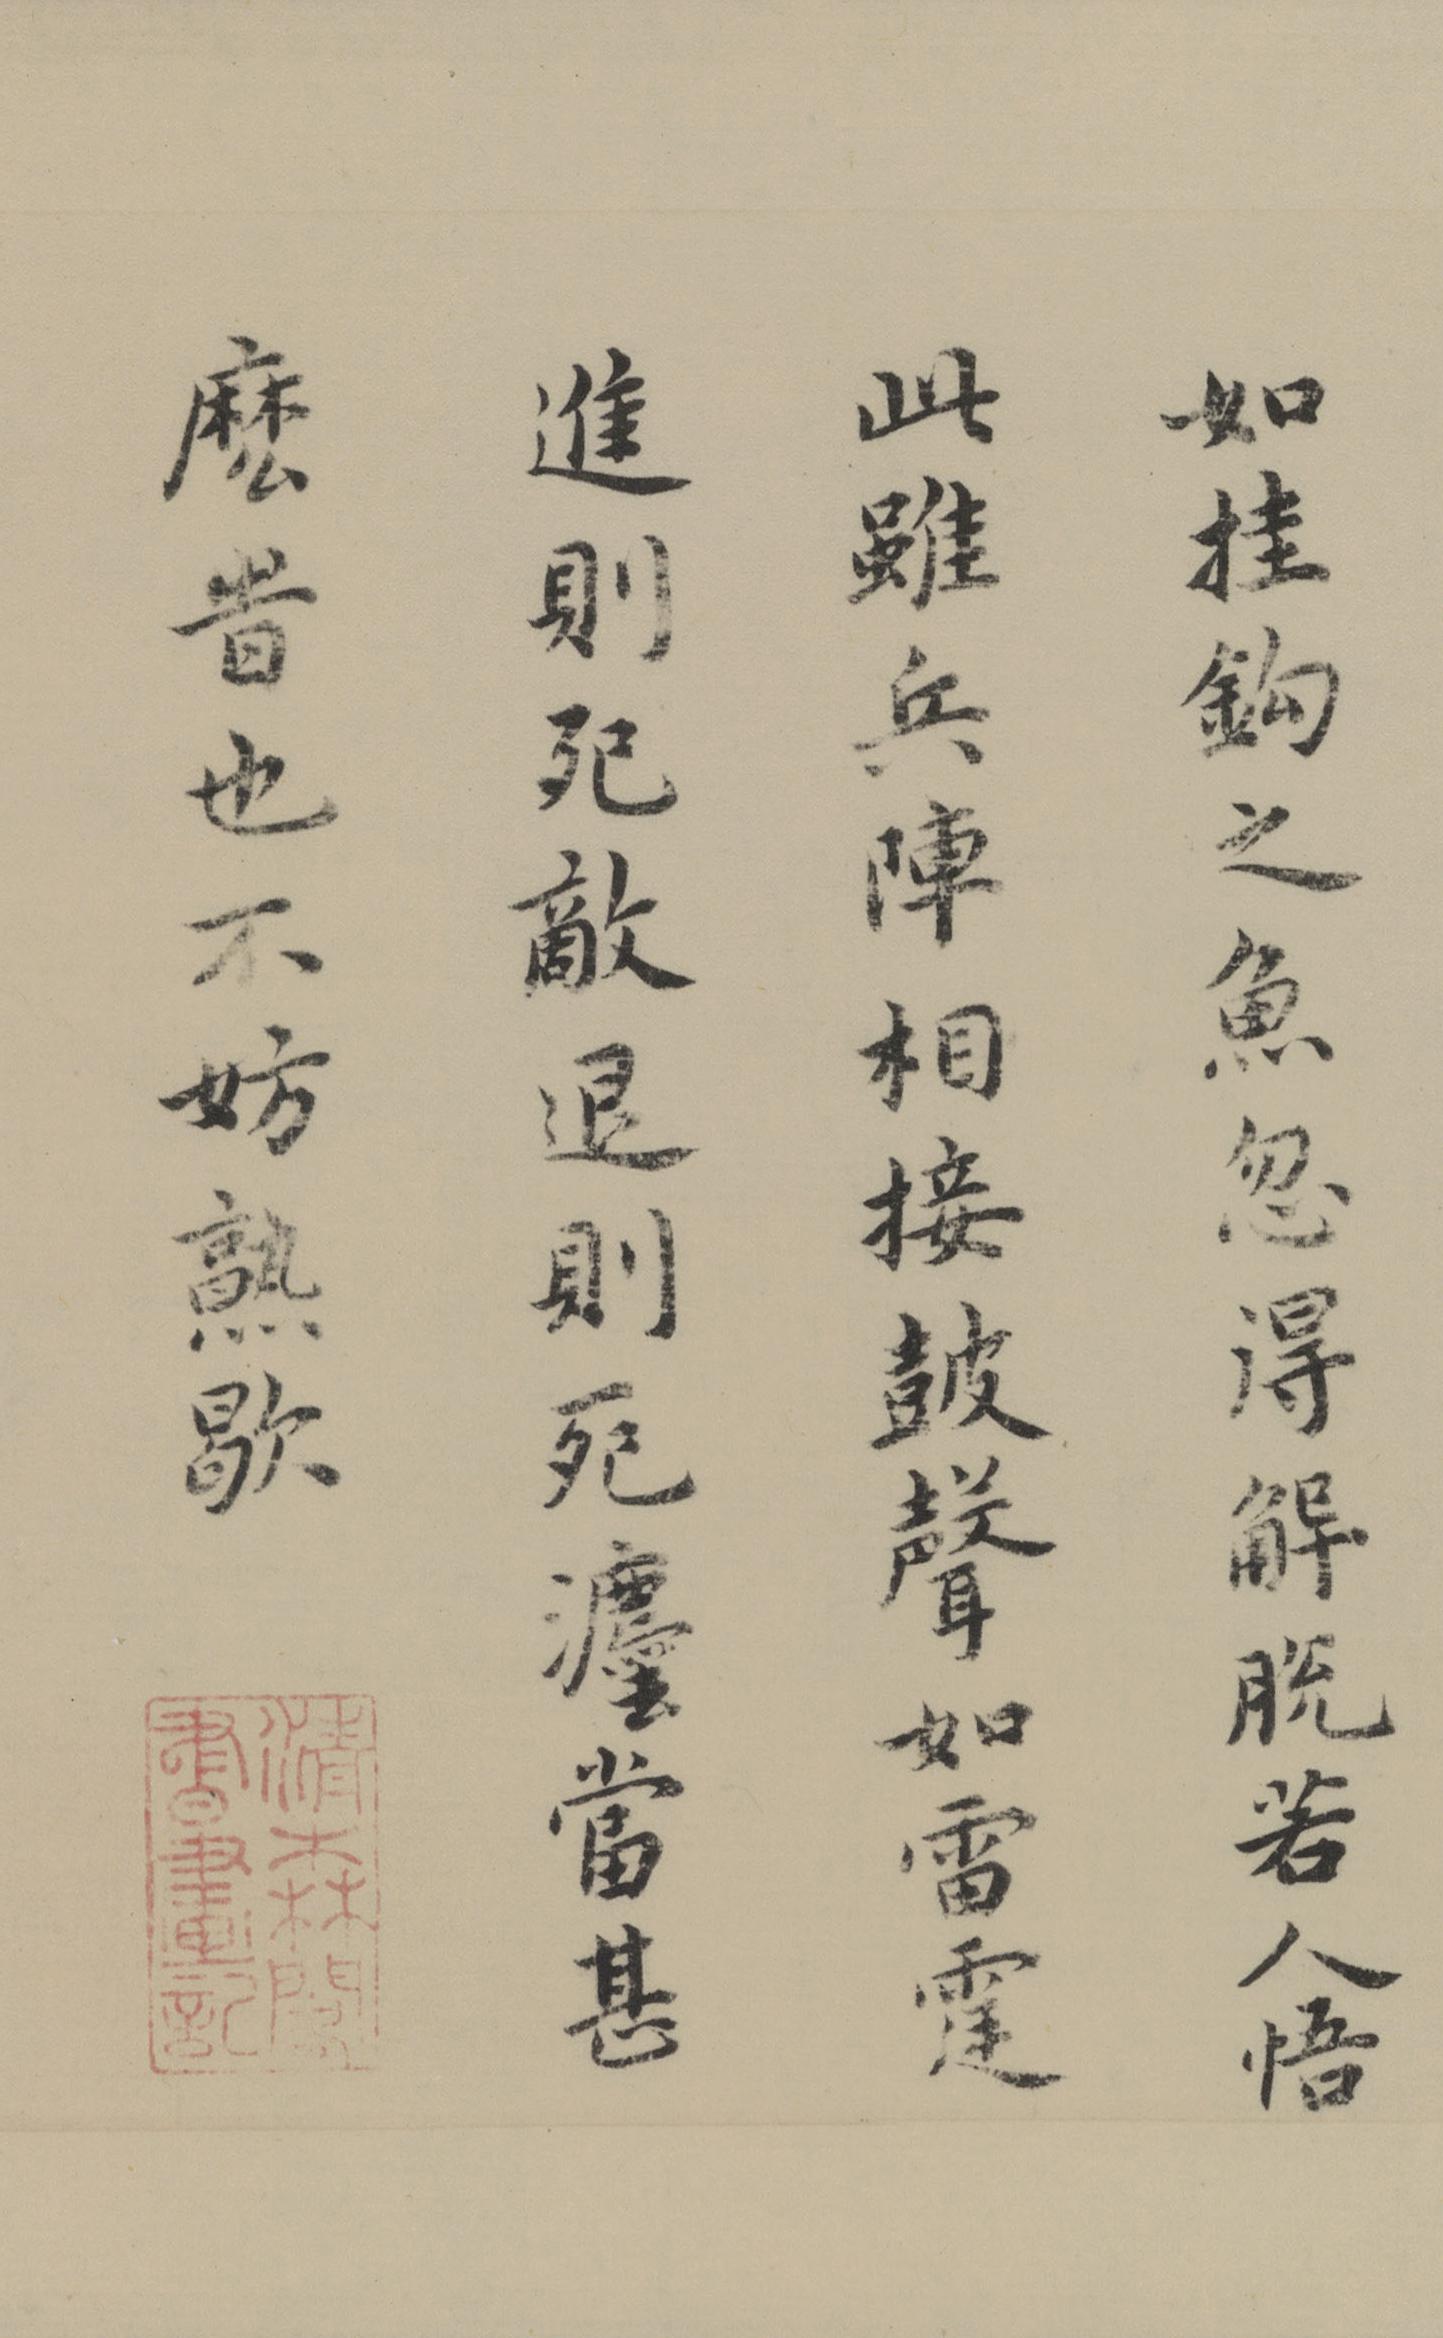 如挂鈎之魚忽得解脫若人悟
此雖兵陣相接鼓聲如雷霆
進則死敵退則死瀍當甚
麽旹也不妨熟歇
清森閣
書畫記